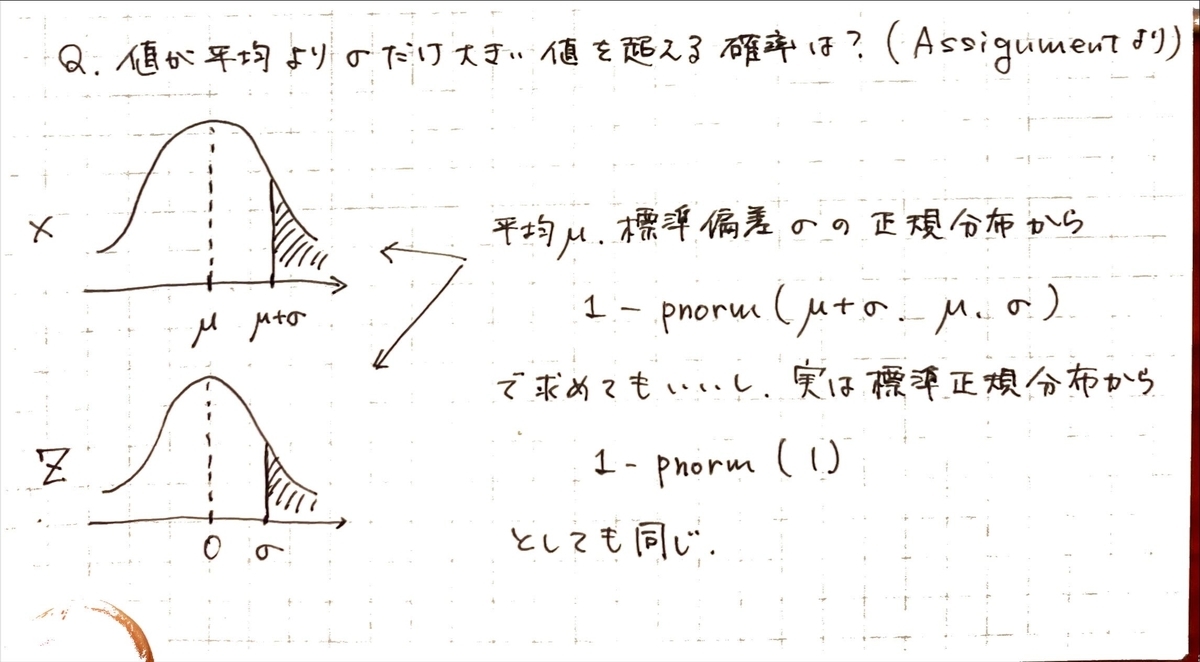 Q. 値が平均よりσだけ大きい値を超える確率は？(Assignmentより)
X
μ μ+σ
平均μ、標準偏差σの正規分布から
1 - pnorm(μ+σ、μ、σ)
で求めてもいいし、実は標準正規分布から
Z
0 σ
1 - pnorm(1)
としても同じ.